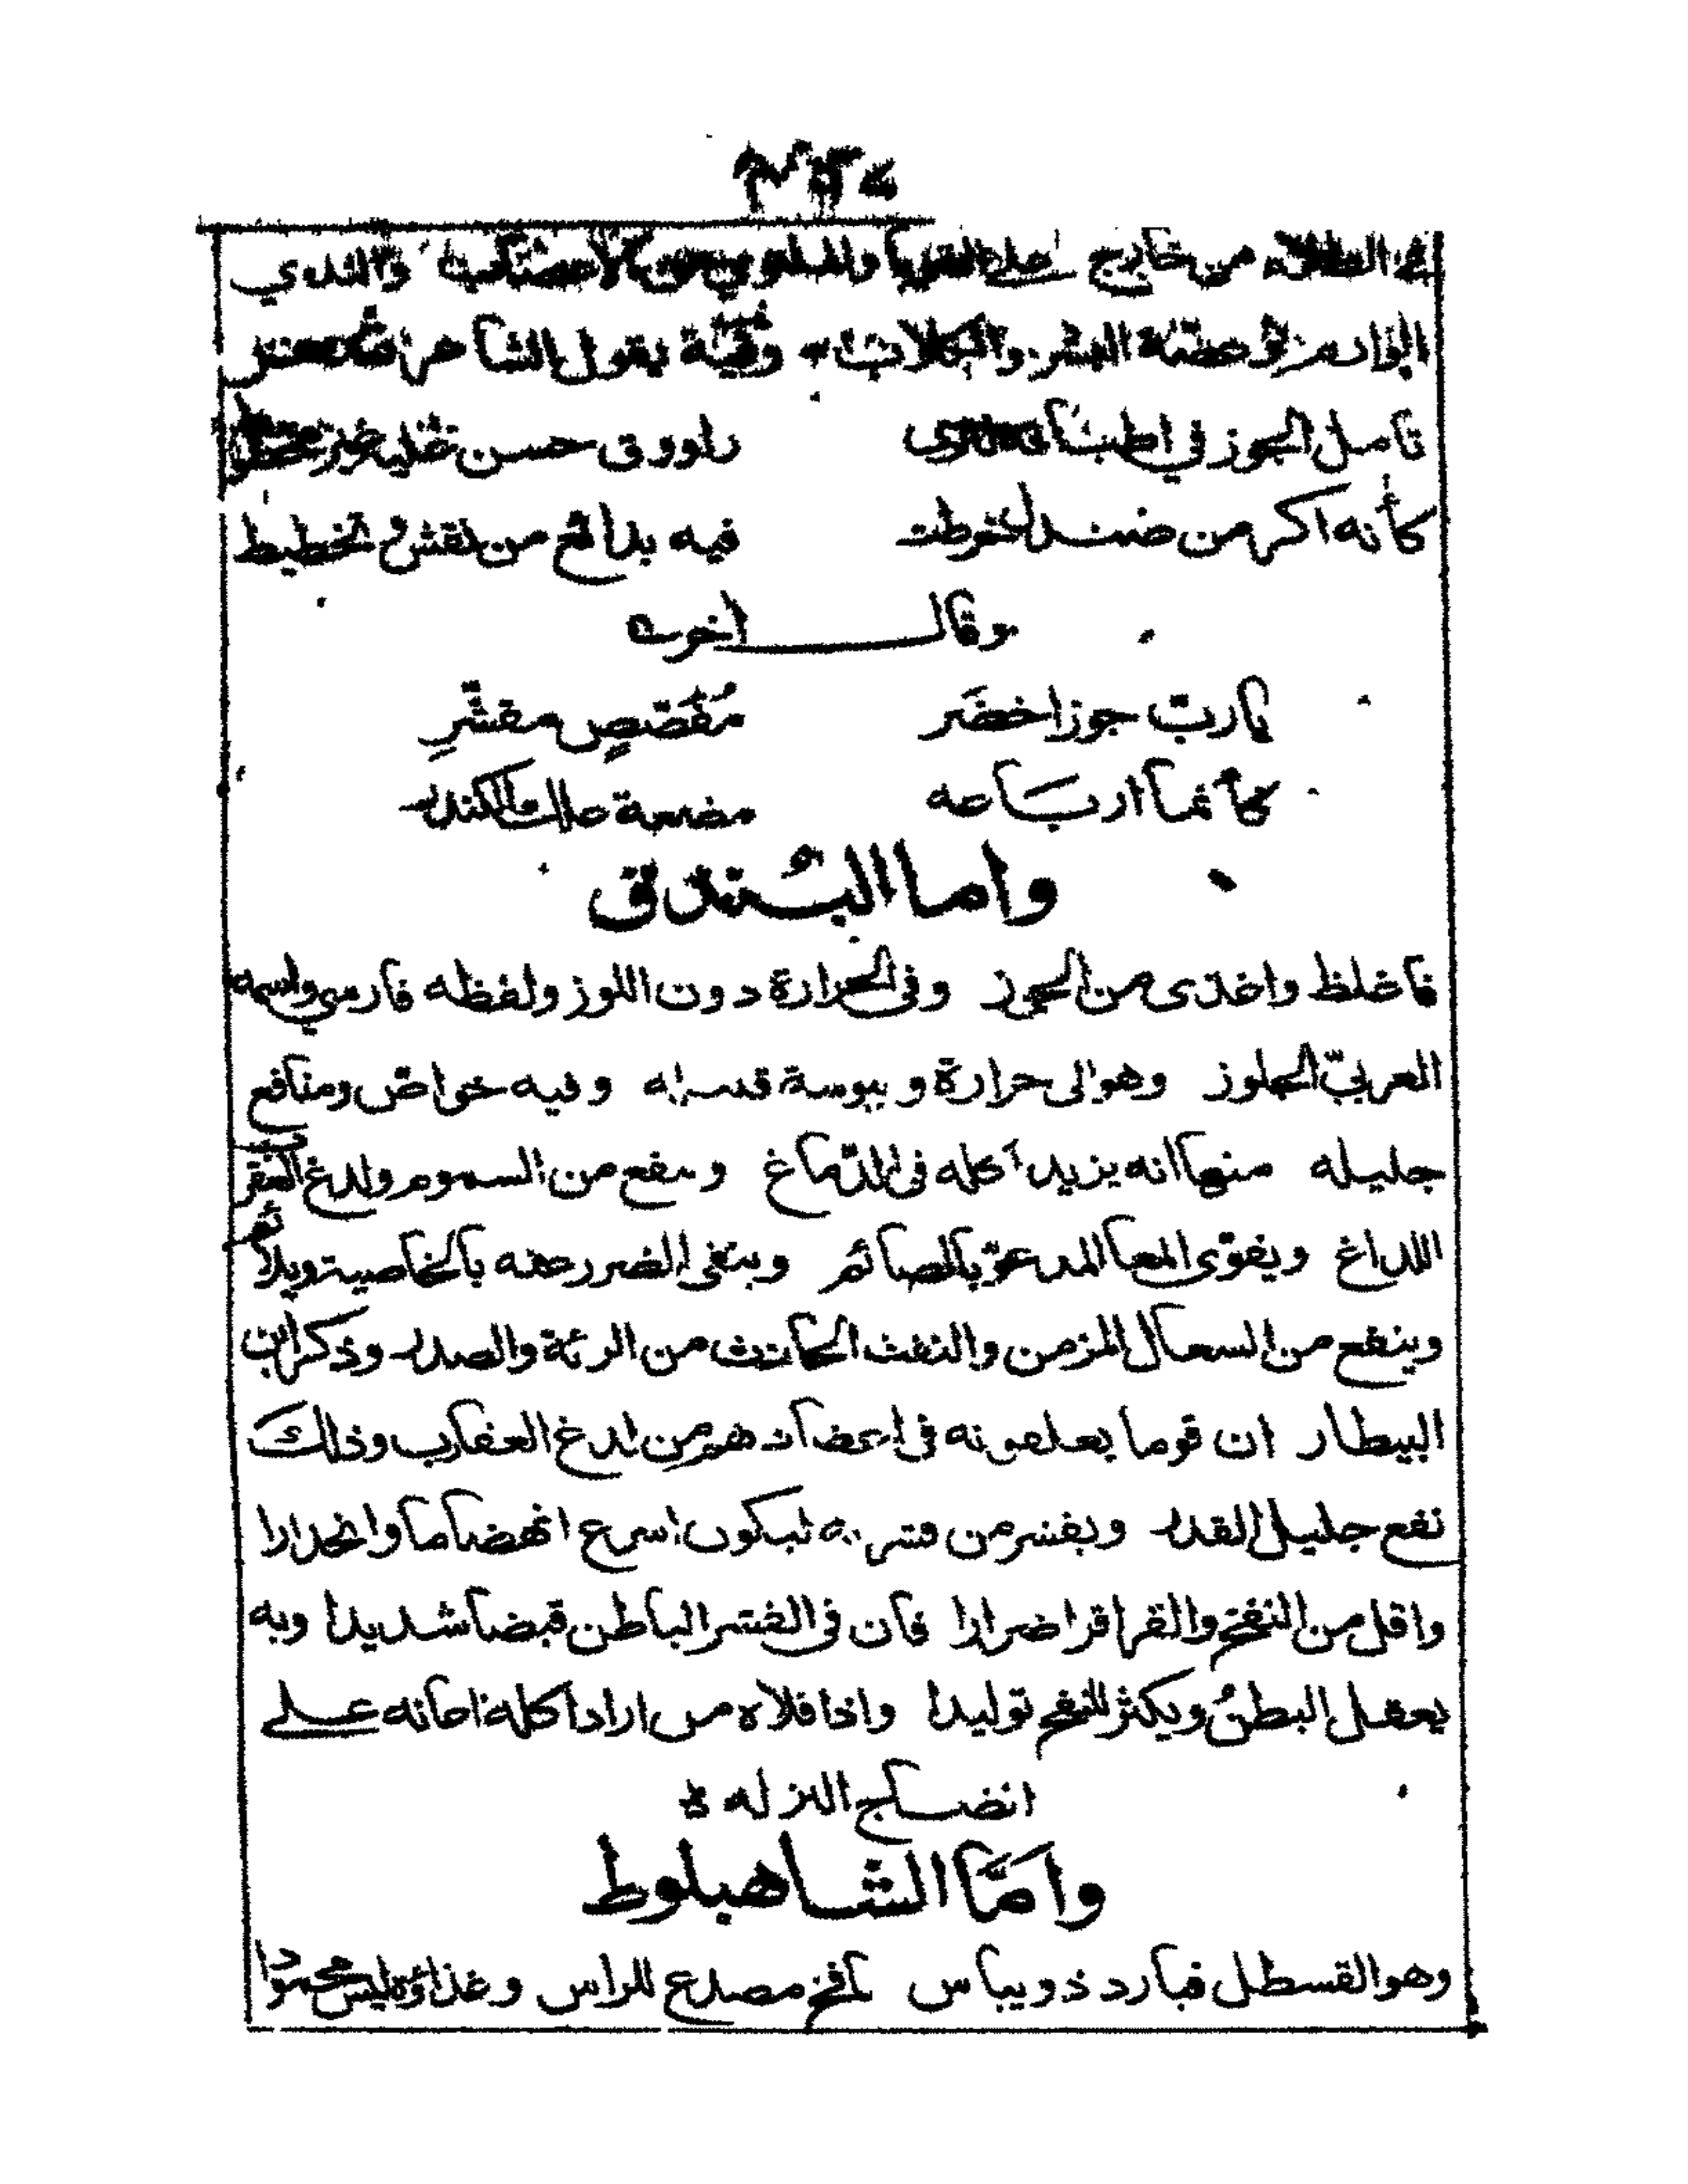 من خارج على القوبا والثدي
الوارم وفيه يقول الشاعر
تامل الجوز في اطباقه لترى راووق حسن عليه غير
كأنه اكر من صندل خرطت فيه بدائع من نقش وتخطيط
وقال اخر
يا رب جوز اخضر مفصص مقشر
كأنما ارباعه مضغة علك الكندر
واما البندق
فاغلظ واغذى من الجوز وفى الحرارة دون اللوز ولفظه فارسي واسمه
العربيّ الجلوز وهو الى حرارة ويبوسة قليله وفيه خواص ومنافع
جليله منها انه يزيد اكله فى الدماغ وينفع من السموم ولدغ العقرب
اللداغ ويقوّى المعا المدعوّ بالصائم وينفى الضرر عنه بالخاصية
وينفع من السعال المزمن والنفث الحادث من الرئة والصدر وذكر ابن
البيطار ان قوما يعلقونه فى اعضادهم من لدغ العقارب وذلك
نفع جليل القدر ويقشر من قشريه ليكون اسرع انهضاما وانحدارا
واقل من النفخ والقراقر اضرارا فان فى القشر الباطن قبضا شديدا وبه
يعقل البطن ويكثر للنفخ توليدا واذا قلاه من اراد اكله اعانه على
انضاج النزله
وامّا الشاهبلوط
وهو القسطل فبارد ذو يباس نافخ مصدع للراس وغذاؤه ليس محمودا